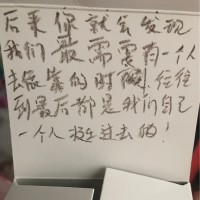 后来你就会发现
我们最需要有一个人
去依靠的时候，往往
到最后都是我们自己
一个人挺过去的！